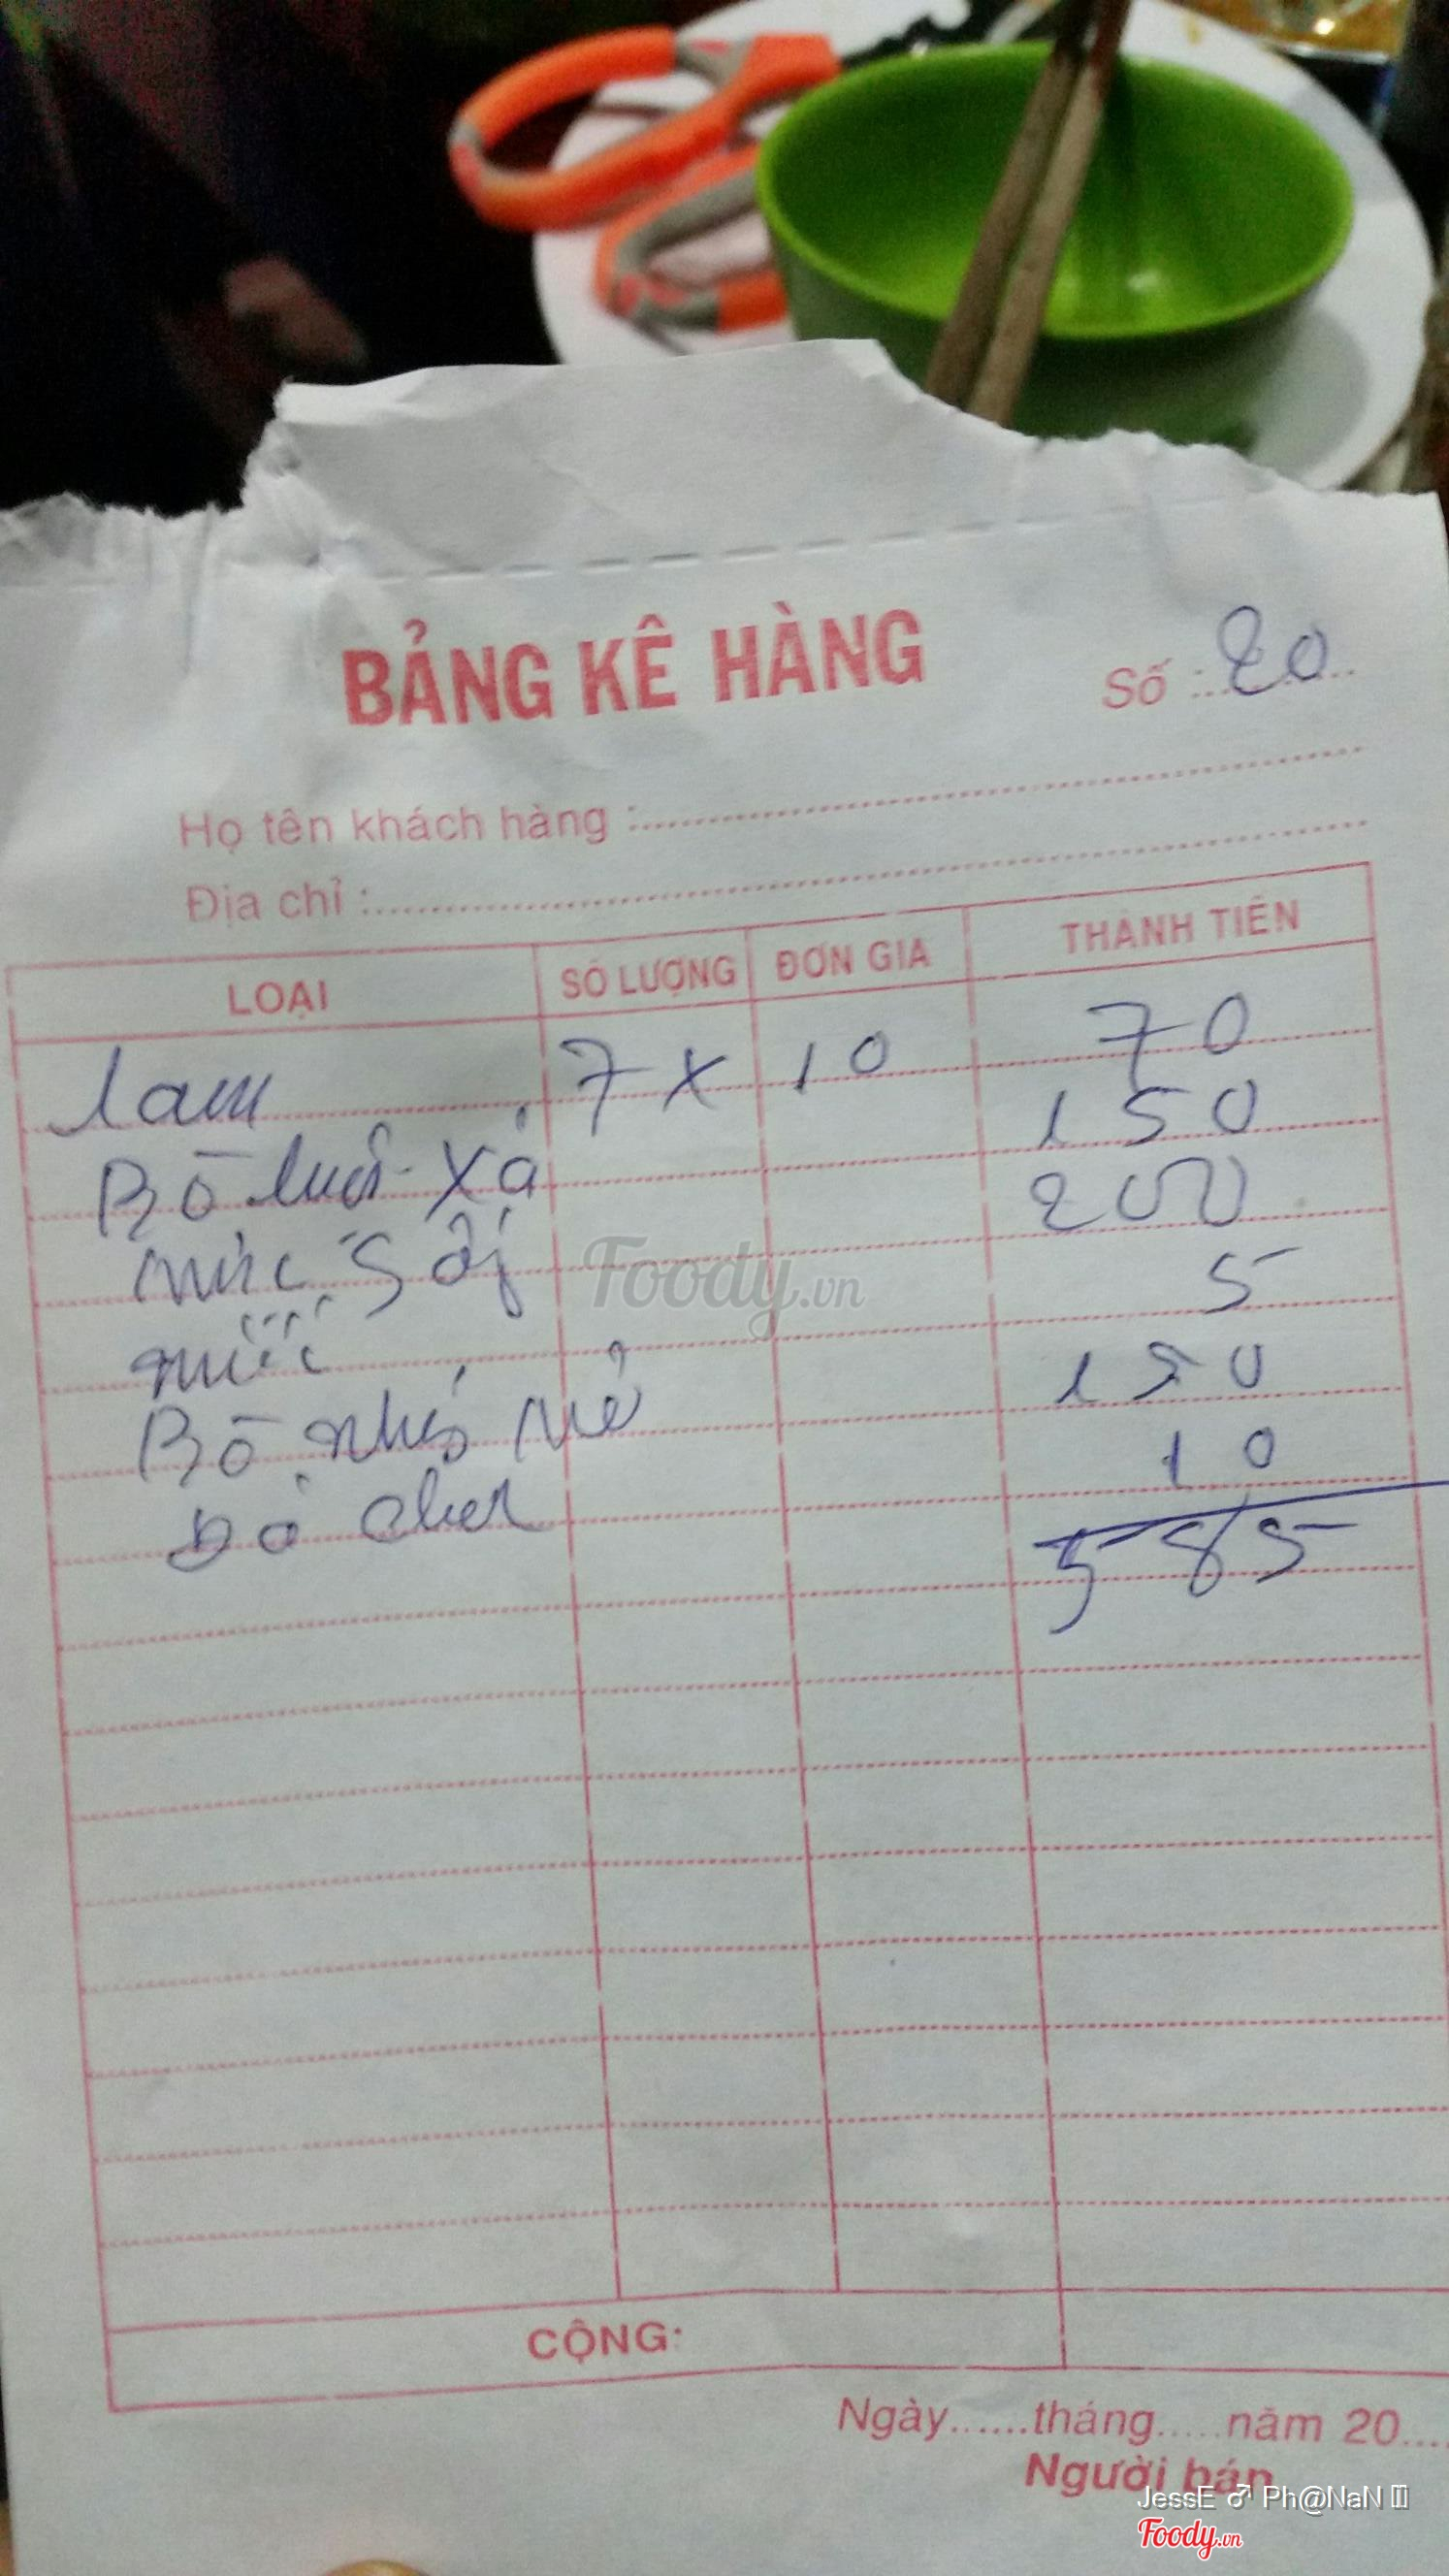 BẢNG KÊ HÀNG
Số : 20
Họ tên khách hàng :
Địa chỉ :
LOẠI SỐ LƯỢNG ĐƠN GIÁ THÀNH TIỀN
7 x 10 70
Bò lưới xả 150
mực 5 200
nước 5
Bò nhớ mở 150
10
585
Foody.vn
CỘNG:
Ngày......tháng.....năm 20....
Người bán
JessE ♂ Ph@NaN
Foody.vn